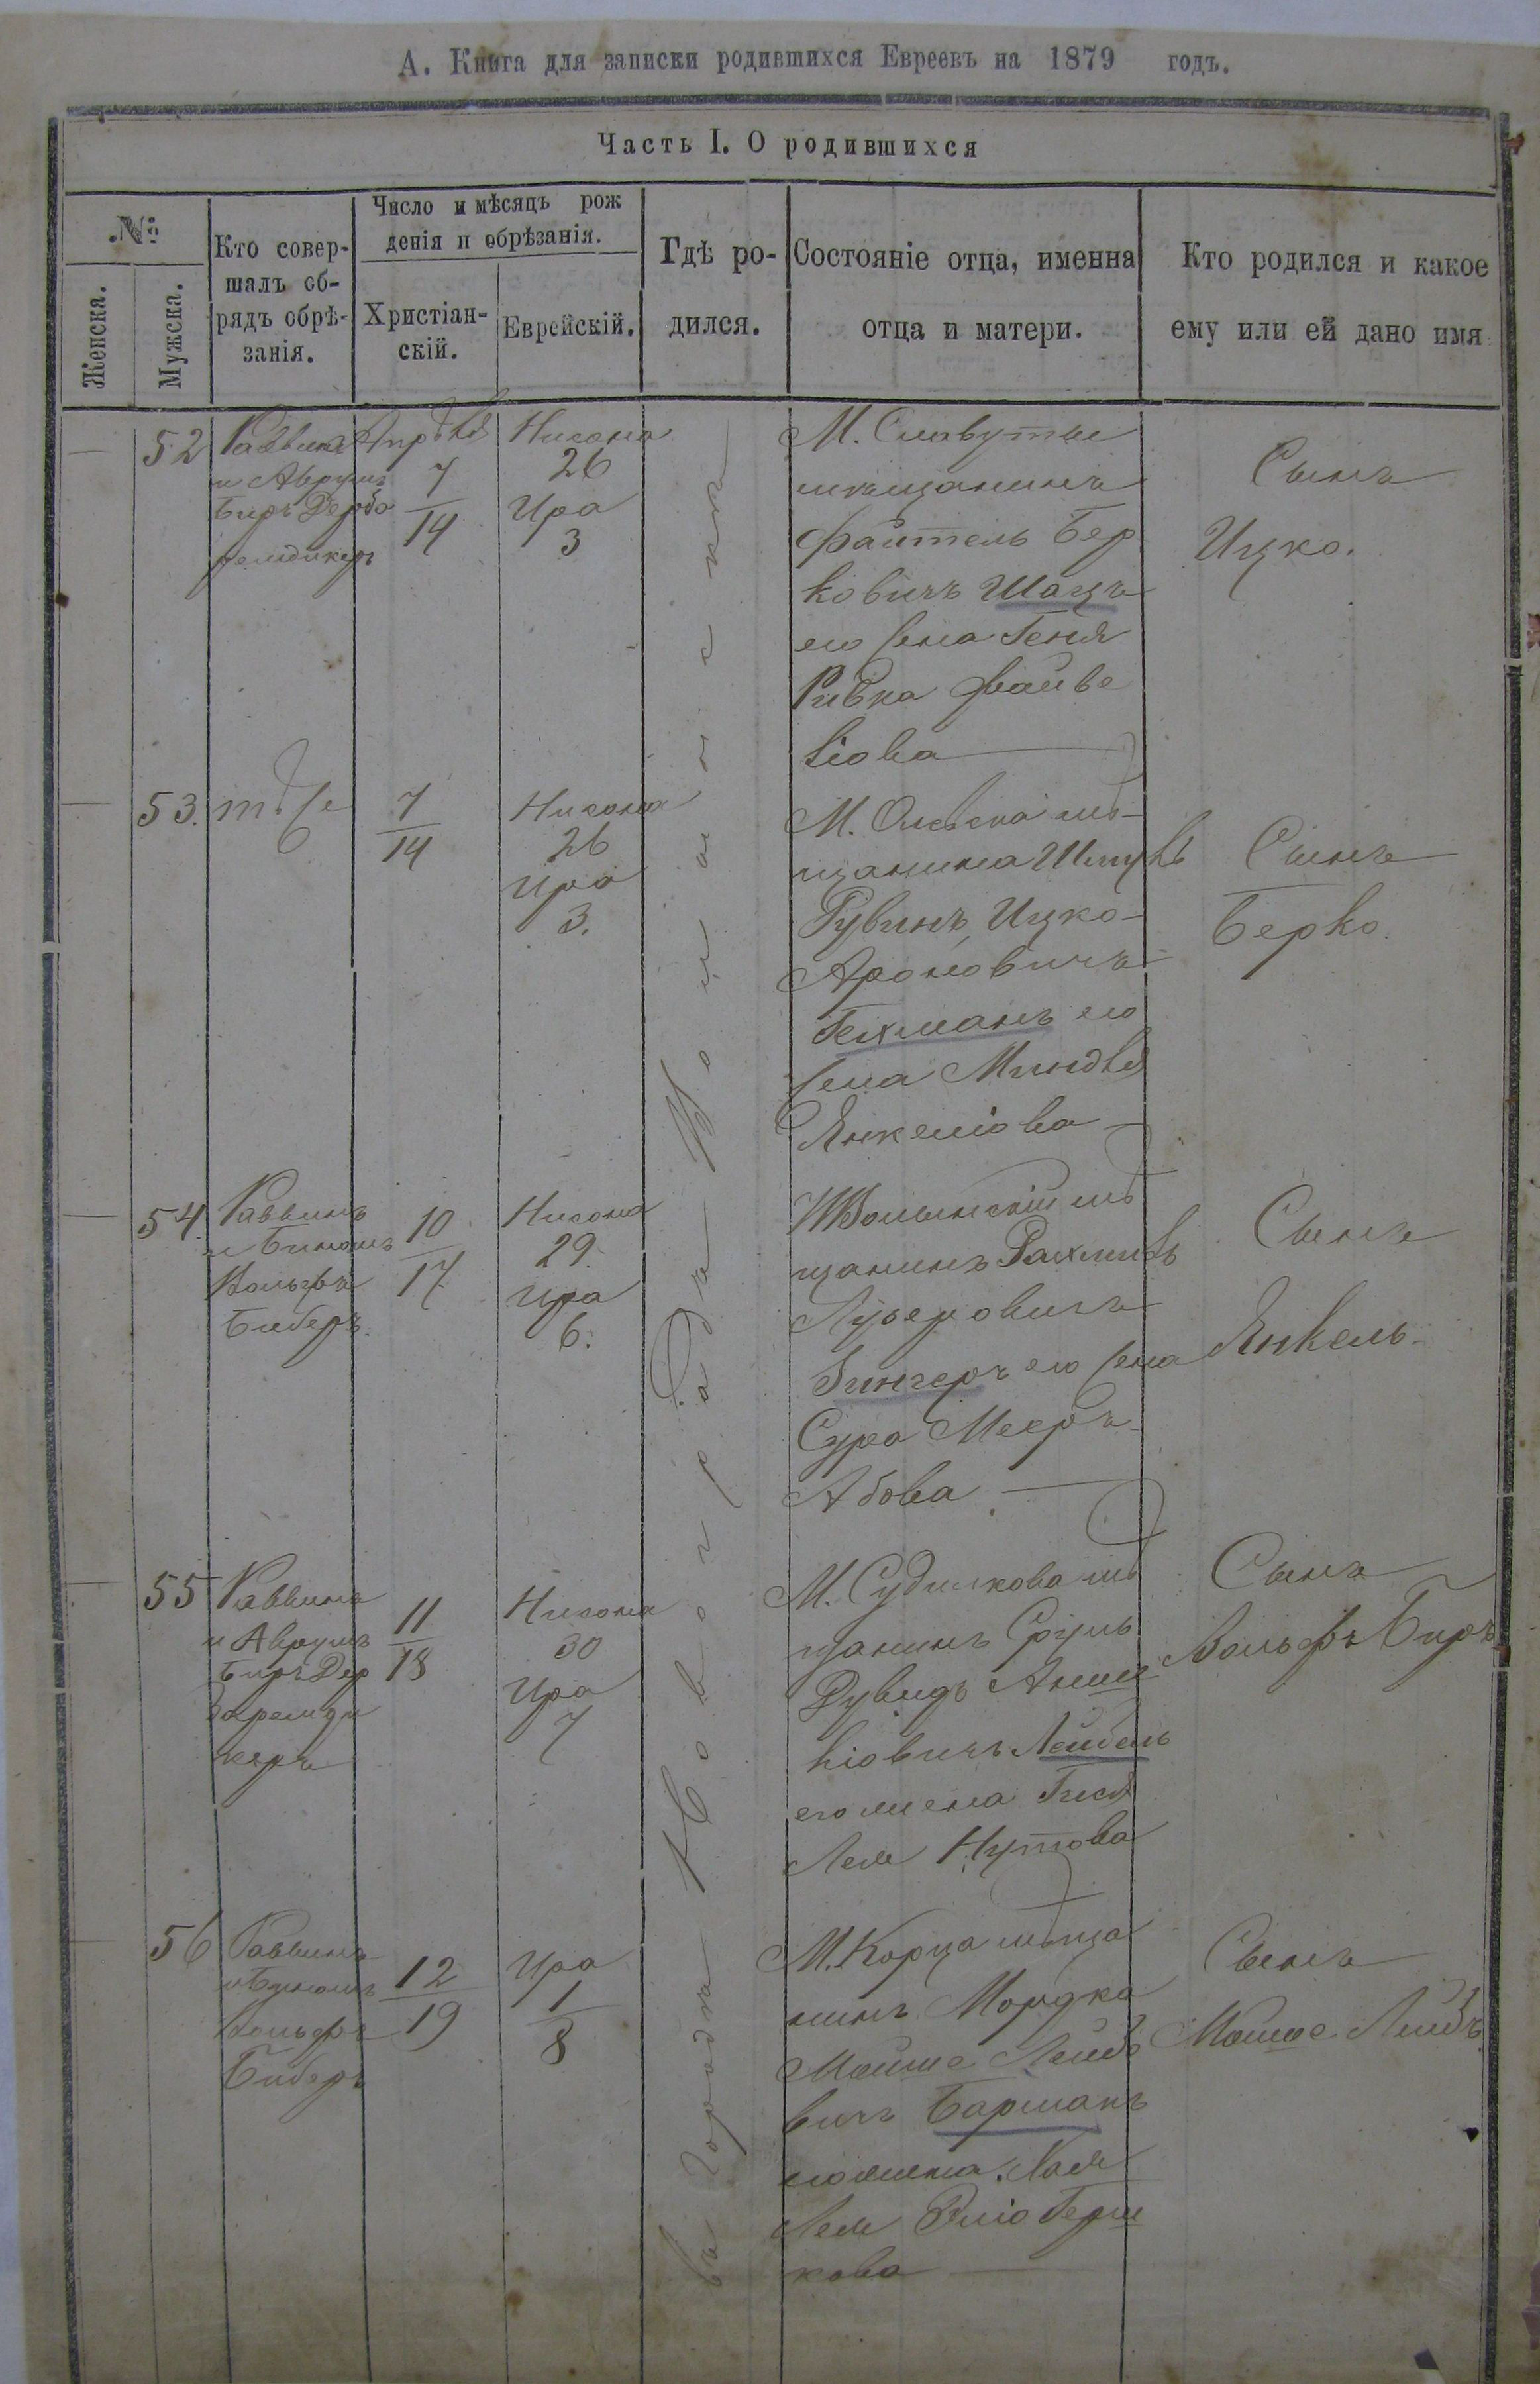 А. Книга для записки родившихся Евреевъ на 1879 годъ.
Часть I. О родившихся
№
Женска.
Мужска.
Кто совер-
шалъ об-
рядъ обрѣ-
занія.
Число и мѣсяцъ рож
денія и обрѣзанія.
Христіан-
скій.
Еврейскій.
Гдѣ ро-
дился.
Состояніе отца, именна
отца и матери.
Кто родился и какое
ему или ей дано имя
въ городѣ Новоградъ Волынскѣ
52
Раввинъ
и Аврумъ
Беръ Дерба
ремдикеръ
Апрѣля
7
14
Нисона
26
Ира
3
М. Славуты
мѣщанинъ
Файтель Бер
ковичъ Шацъ
его жена Геня
Ривка Файве
лiова
Сынъ
Ицко.
53.
тѣже
7
14
Нисона
26
Ира
3.
М. Олевска мѣ-
щанина Шмулъ
Рувинъ Ицко-
Ароновичъ
Гехманъ его
жена Миндля
Янкелiова
Сынъ
Берко.
54.
Раввинъ
и Бинюмъ
Вольфъ
Биберъ.
10
17
Нисона
29.
Ира
6.
НВолынскій мѣ
щанинъ Рахмиль
Лузеровичъ
Зингеръ его жена
Сура Мееръ-
Абова
Сынъ
Янкель.
55
Раввинъ
и Аврумъ
Беръ Дер
баремди
керъ
11
18
Нисона
30
Ира
7
М. Судилкова мѣ
щанинъ Сруль
Рувидъ Анше
лiовичъ Лейбель
его жена Гися
Лея Нутова
Сынъ
Вольфъ Беръ
56
Раввинъ
и Бинюмъ
Вольфъ
Биберъ
12
19
Ира
1
8
М. Корца мѣща
нинъ Мордко
Мойше Лейбо
вичъ Барманъ
его жена Хая
Лея Элiо Герш
кова
Сынъ
Мойше Лейбъ